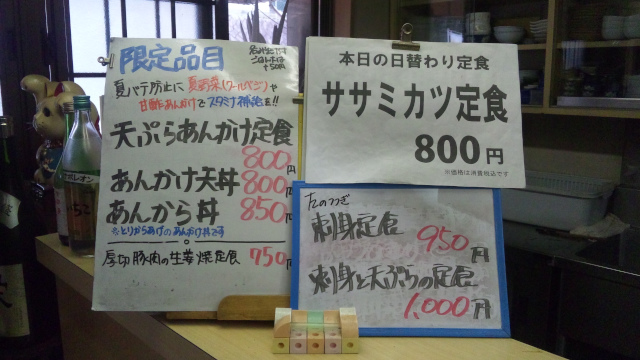 限定品目
夏バテ防止に夏野菜(クールベジ)や
甘酢あんかけでスタミナ補給を!!
天ぷらあんかけ定食
800円
あんかけ天丼 800円
あんから丼 850円
とりからあげのあんかけ丼です
厚切豚肉の生姜焼定食 750円
本日の日替わり定食
ササミカツ定食
800円
※価格は消費税込です
刺身定食 950円
刺身と天ぷらの定食
1,000円